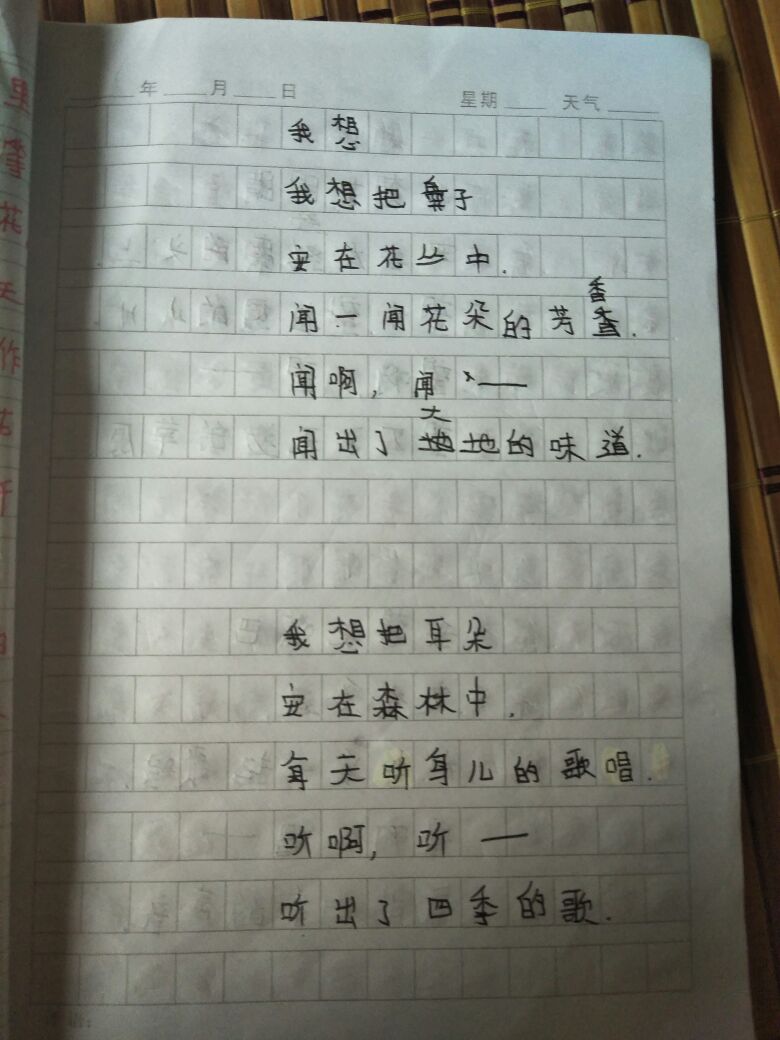 年 月 日 星期 天气
我想
我想把鼻子
安在花丛中.
闻一闻花朵的芳香.
闻啊,闻——
闻出了大地的味道.
我想把耳朵
安在森林中.
每天听鸟儿的歌唱.
听啊,听——
听出了四季的歌.